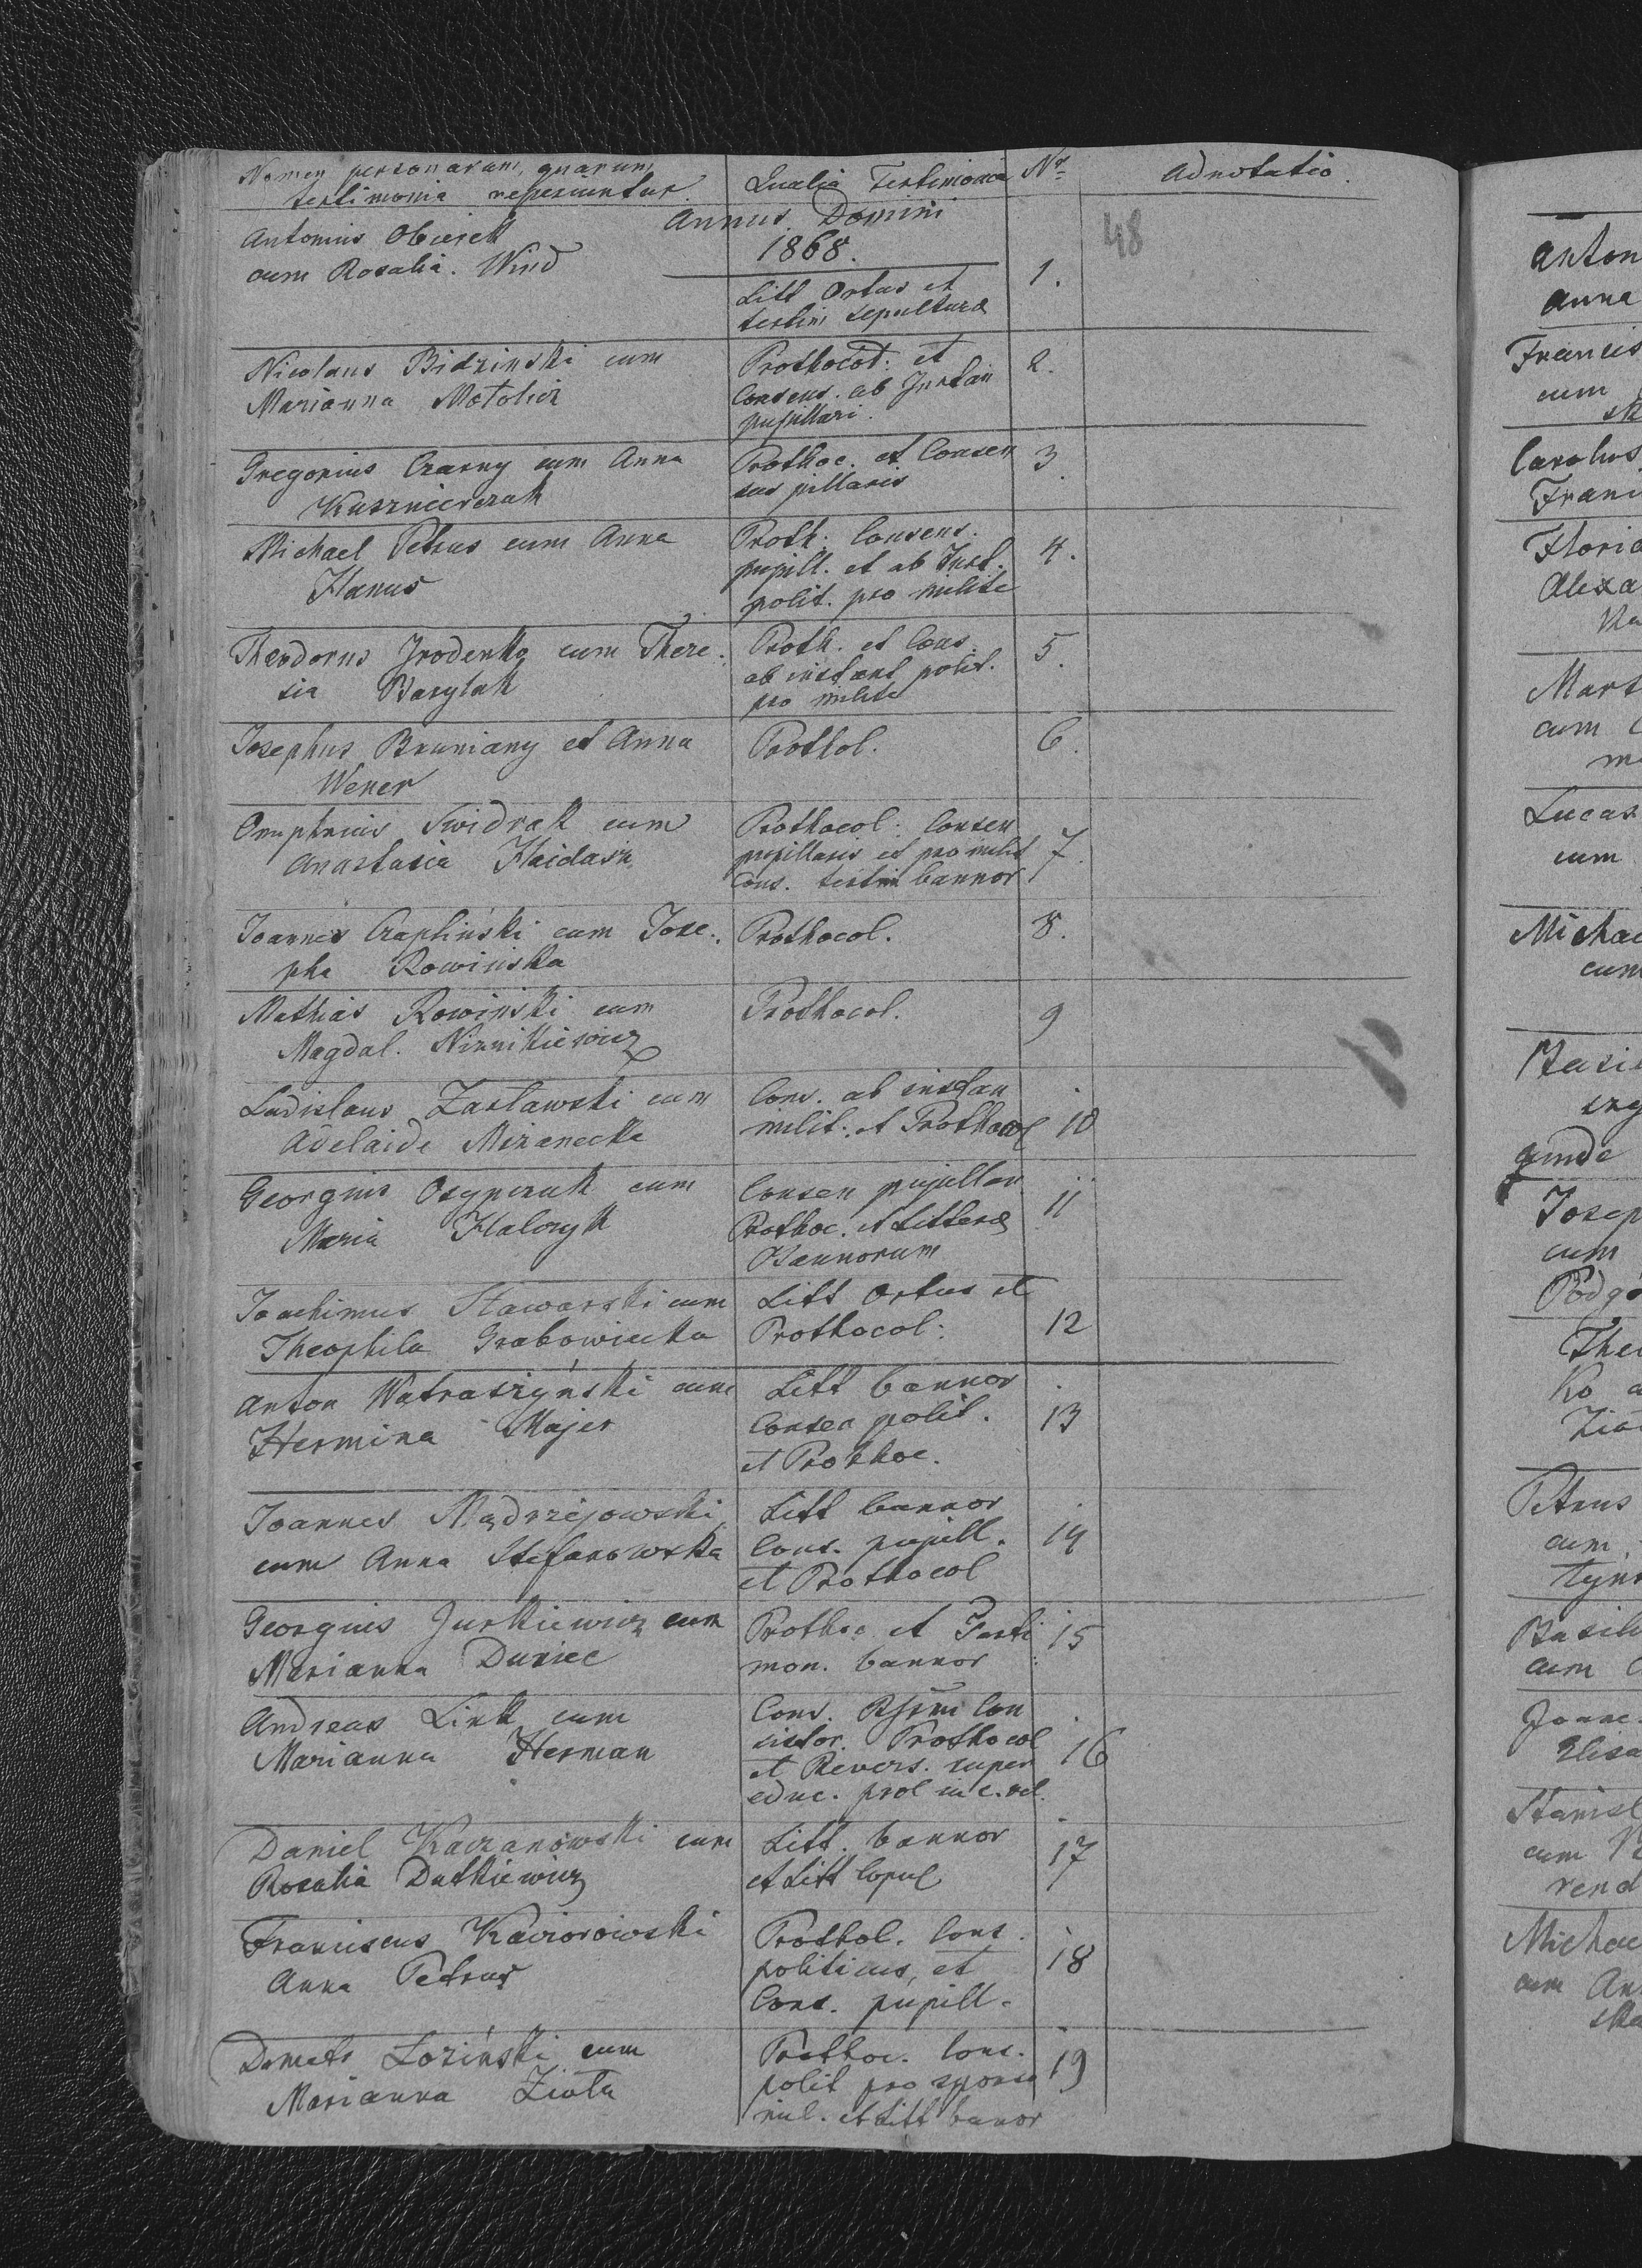 Nomen personarum, quarum
testimonia reperiuntur.
Qualia Testimonia
Nr
Adnotatio.
Annus Domini
1868.
48
Antonius Obierek
cum Rosalia Wind
Litt Ortus et
testim sepulturae
1.
Nicolaus Bidzinski cum
Marianna Motolicz
Prothocol. et
Consens. ab Instan
pupillari.
2.
Gregorius Czarny cum Anna
Kusznierczuk
Prothoc. et Consen
sus pillaris
3.
Michael Petrus cum Anna
Hanus
Proth. Consens.
pupill. et ab Inst.
polit. pro milite
4.
Theodorus Jrodenko cum There-
sia Basylak
Proth. et Cons.
ab instant polit.
pro milite
5.
Josephus Bruniany et Anna
Wener
Prothol.
6.
Onuphrius Swidrak cum
Anastasia Haidasz
Prothocol. Consen
pupillaris et pro milit
Cons. testim bannor
7.
Joannes Czapliński cum Jose-
pha Rowińska
Prothocol.
8.
Mathias Rowiński cum
Magdal. Niznikiewicz
Prothocol.
9
Ladislaus Zasławski cum
Adelaide Mizanecka
Cons. ab instan
milit. et Prothocol
10
Georgius Osypczuk cum
Maria Halczyk
Consen pupillar
Prothoc. et Litterae
Bannorum
11
Joachimus Stawarski cum
Theophila Grabowiecka
Litt Ortus et
Prothocol.
12
Anton Watraszyński cum
Hermina Majer
Litt bannor
Consen polit.
et Prothoc.
13
Joannes Mądrzejowski
cum Anna Stefanowska
Litt bannor
Cons. pupill.
et Prothocol
14
Georgius Jurkiewicz cum
Marianna Duniec
Prothoc et Testi
mon. bannor
15
Andreas Link cum
Marianna Herman
Cons. Con
sistor. Prothocol
et Revers. super
educ. prol in c. rel.
16
Daniel Kaczanowski cum
Rosalia Dutkiewicz
Litt. bannor
et Litt Copul
17
Franciscus Kaczorowski
Anna Petrus
Prothol. Cons.
politicus, et
Cons. pupill.
18
Donats Łoziński cum
Marianna Ziota
Prothoc. Cons.
polit pro sponso
mil. et Litt banor
19
Anton
Anna
Francis
cum
Carolus
Franc
Floria
Alexa
Mart
cum
Lucas
cum
Michae
cum
Basi
Josep
cum
Podgó
Theo
ko
Petrus
cum
tyn
Basili
cum
Joann
Elisa
Stanisl
cum
rend
Michae
cum An
ska